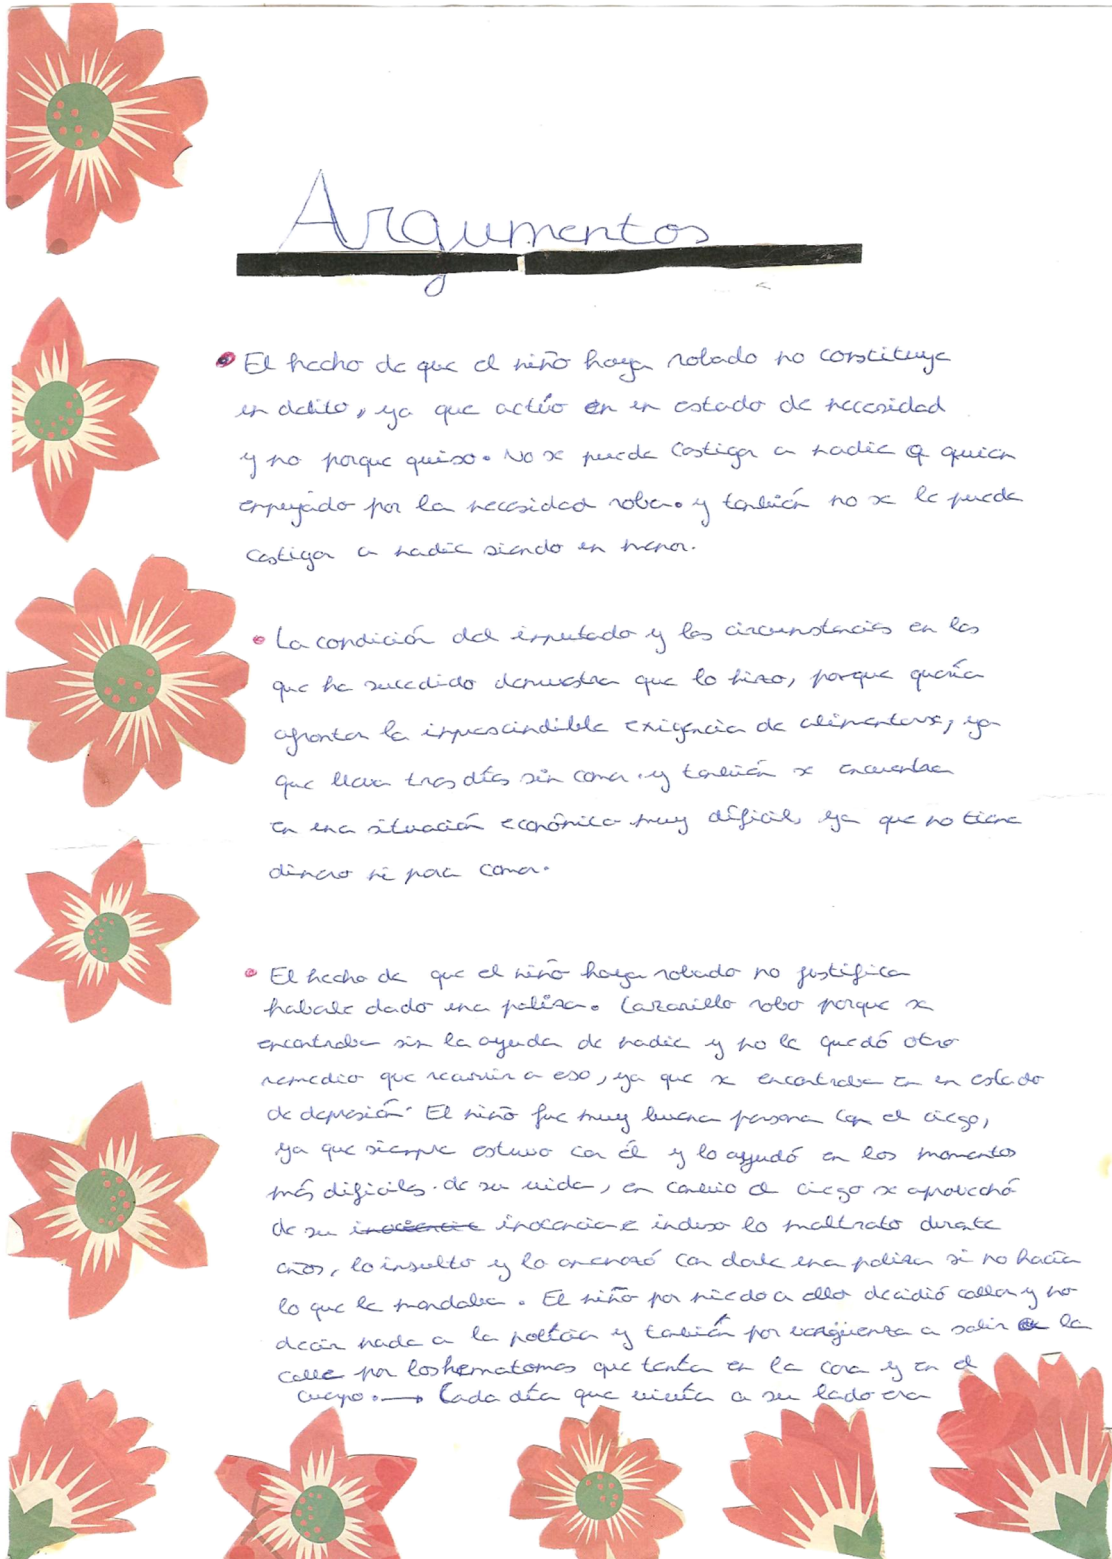 Argumentos
El hecho de que el niño haya robado no constituye
un delito, ya que actúo en un estado de necesidad
y no porque quiso. No se puede castigar a nadie q quien
empujado por la necesidad roba. y también no se le puede
castigar a nadie siendo un menor.
La condición del imputado y las circunstancias en las
que ha sucedido demuestra que lo hizo, porque quería
afrontar la imprescindible exigencia de alimentarse, ya
que lleva tres días sin comer. y también se encuentra
en una situación económica muy difícil, ya que no tiene
dinero ni para comer.
El hecho de que el niño haya robado no justifica
haberle dado una paliza. Lazarillo robo porque se
encontraba sin la ayuda de nadie y no le quedó otro
remedio que recurrir a eso, ya que se encontraba en un estado
de depresión. El niño fue muy buena persona con el ciego,
ya que siempre estuvo con él y lo ayudó en los momentos
más difíciles de su vida, en cambio el ciego se aprovechó
de su inocencia e incluso lo maltrato durante
años, lo insulto y lo amenazó con darle una paliza si no hacía
lo que le mandaba. El niño por miedo a ello decidió callar y no
decir nada a la policía y también por vergüenza a salir a la
calle por los hematomas que tenía en la cara y en el
cuerpo. → Cada día que vivía a su lado era